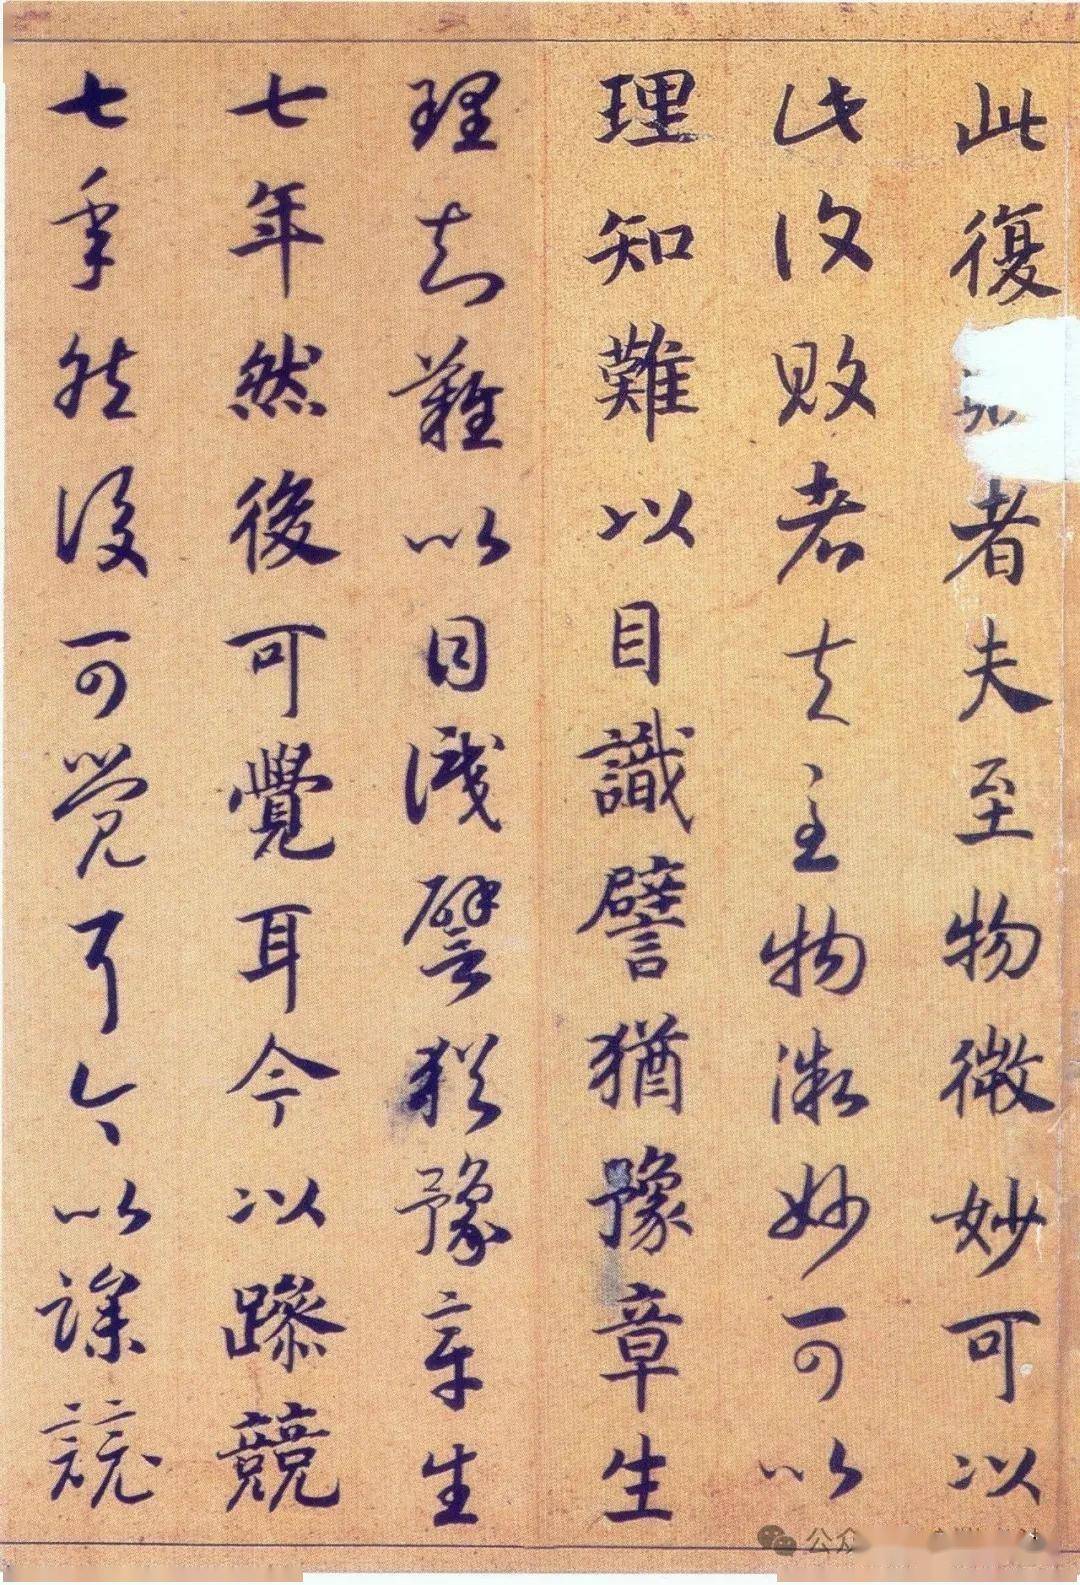 此復者夫至物微妙可以
此復敗者夫至物微妙可以
理知難以目識譬猶豫章生
理知難以目識譬猶豫章生
七年然後可覺耳今以躁競
七年然後可覺耳今以躁競
公众